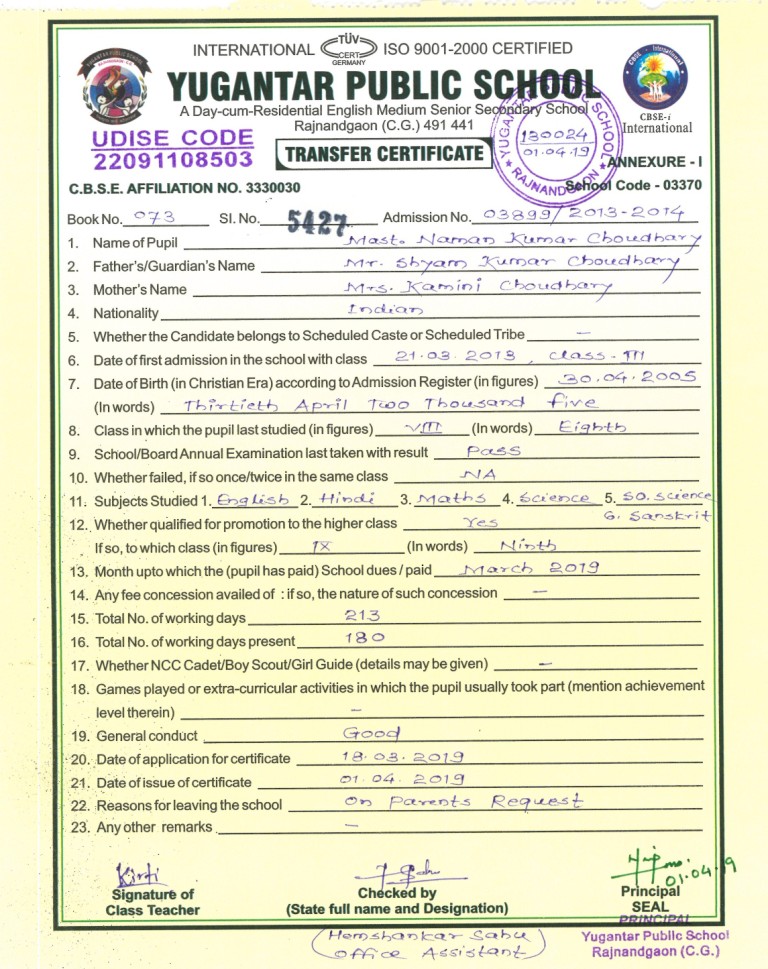 INTERNATIONAL TÜV CERT GERMANY ISO 9001-2000 CERTIFIED
YUGANTAR PUBLIC SCHOOL
A Day-cum-Residential English Medium Senior Secondary School
Rajnandgaon (C.G.) 491 441
CBSE-i
International
UDISE CODE
22091108503
TRANSFER CERTIFICATE
YUGANTAR PUBLIC SCHOOL
130024
01.04.19
★ RAJNANDGAON ★
ANNEXURE - I
C.B.S.E. AFFILIATION NO. 3330030 School Code - 03370
Book No. 073 Sl. No. 5427 Admission No. 03899/2013-2014
1. Name of Pupil Mast. Naman Kumar Choudhary
2. Father's/Guardian's Name Mr. Shyam Kumar Choudhary
3. Mother's Name Mrs. Kamini Choudhary
4. Nationality Indian
5. Whether the Candidate belongs to Scheduled Caste or Scheduled Tribe —
6. Date of first admission in the school with class 21.03.2013, Class-III
7. Date of Birth (in Christian Era) according to Admission Register (in figures) 30.04.2005
(In words) Thirtieth April Two Thousand five
8. Class in which the pupil last studied (in figures) VIII (In words) Eighth
9. School/Board Annual Examination last taken with result Pass
10. Whether failed, if so once/twice in the same class NA
11. Subjects Studied 1. English 2. Hindi 3. Maths 4. Science 5. SO. Science
6. Sanskrit
12. Whether qualified for promotion to the higher class Yes
If so, to which class (in figures) IX (In words) Ninth
13. Month upto which the (pupil has paid) School dues / paid March 2019
14. Any fee concession availed of : if so, the nature of such concession —
15. Total No. of working days 213
16. Total No. of working days present 180
17. Whether NCC Cadet/Boy Scout/Girl Guide (details may be given) —
18. Games played or extra-curricular activities in which the pupil usually took part (mention achievement
level therein) —
19. General conduct Good
20. Date of application for certificate 18.03.2019
21. Date of issue of certificate 01.04.2019
22. Reasons for leaving the school On Parents Request
23. Any other remarks —
Kirti
01.04.19
Signature of
Class Teacher
Checked by
(State full name and Designation)
Principal
SEAL
(Hemshankar Sahu)
Office Assistant)
PRINCIPAL
Yugantar Public School
Rajnandgaon (C.G.)